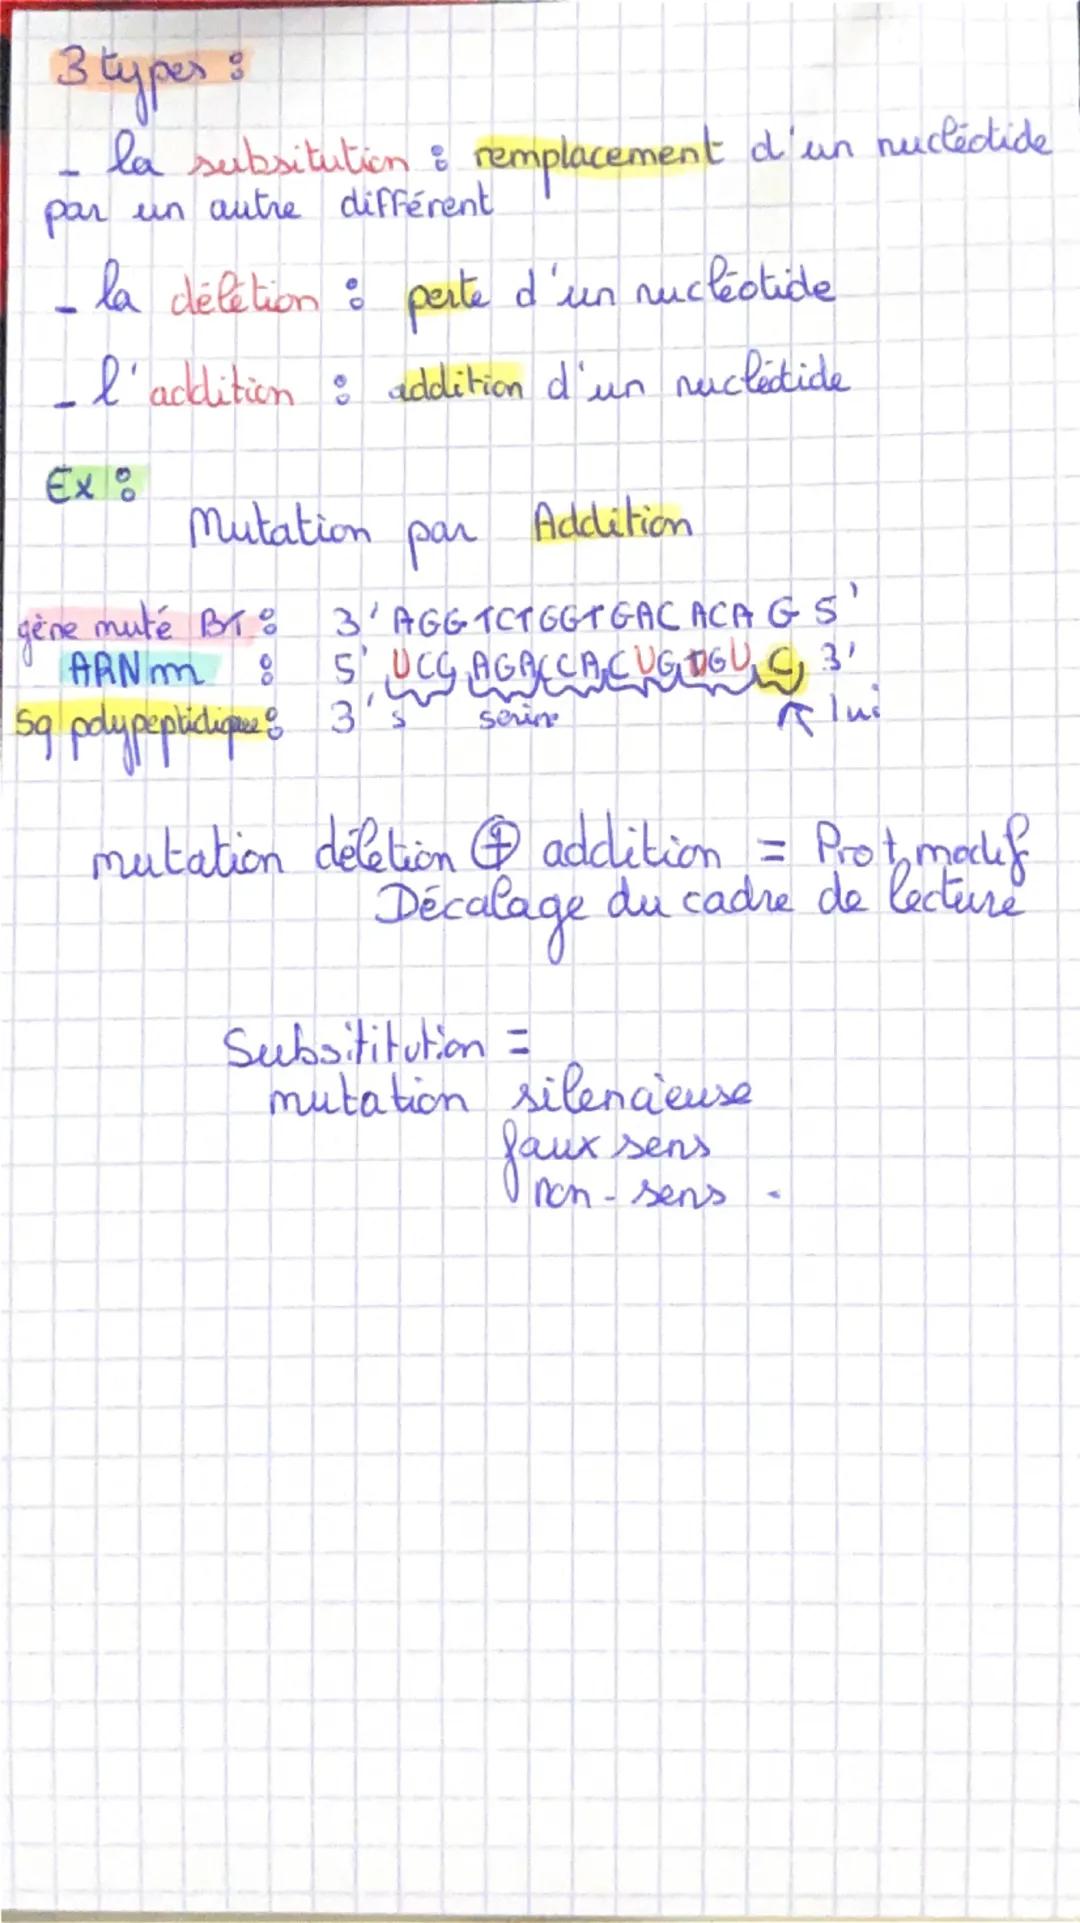 3 types :
- la subsitution : remplacement d'un nucléotide
par un autre différent
- la délétion : perte d'un nucléotide
- l'addition : addition d'un nucléotide
Ex :
Mutation par Addition
gène muté BT : 3' AGG TCT GGT GAC ACA G 5'
ARNm : 5' UCG AGA CCA CUG UGU C 3'
Sq polypeptidique : 3' s serine lui
mutation délétion + addition = Prot modif
Décalage du cadre de lecture
Subsititution =
mutation silencieuse
faux sens
non-sens.